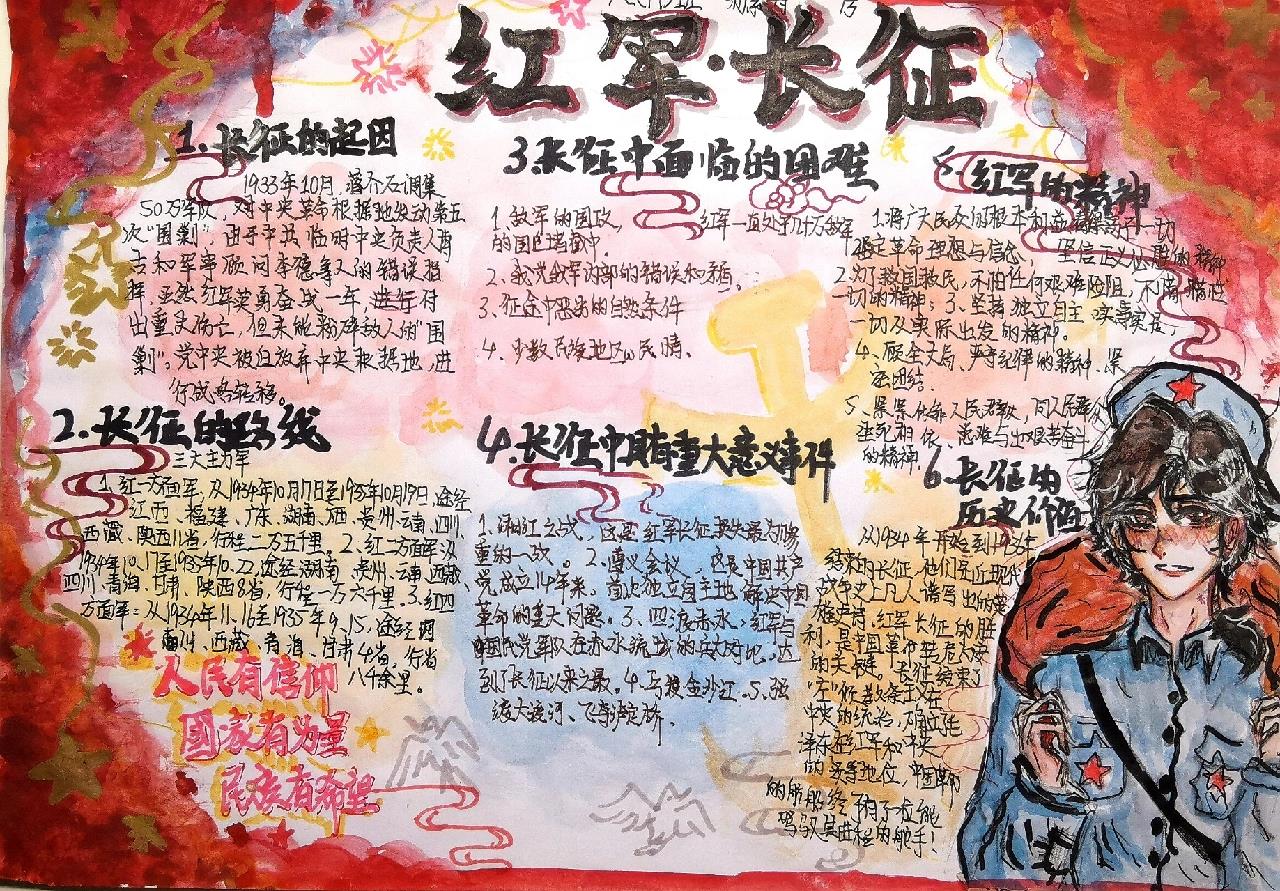 红军·长征
1.长征的起因
1933年10月,蒋介石调集
50万军队,对中央革命根据地发动第五
次“围剿”,由于中共临时中央负责人博
古和军事顾问李德等人的错误指
挥,虽然红军英勇奋战一年,进行付
出重大伤亡,但未能粉碎敌人的“围
剿”,党中央被迫放弃中央根据地,进
行战略转移。
2.长征的路线
三大主力军
1.红一方面军,从1934年10月17日至1935年10月19日,途经
江西、福建、广东、湖南、广西、贵州、云南、四川、
西藏、陕西11省,行程二万五千里。2、红二方面军:从
四川、青海、甘肃、陕西8省,行程一万六千里。3、红四
方面军:从1934年11.16至1935年9.15,途经四
川、西藏、青海、甘肃4省,行省
八千余里。
人民有信仰
國家有力量
民族有希望
3.长征中面临的困难
1、敌军的围攻, 红军一直处于几十万敌军
的围追堵截中。
2、我党敌军内部的错误和矛盾。
3、征途中恶劣的自然条件
4、少数民族地区的民情。
4.长征中具有重大意义事件
1、湘江之战,这是红军长征损失最为惨
重的一战。2、遵义会议、这是中国共产
党成立14年来,首次独立自主地解决中国
革命的重大问题。3、四渡赤水、红军与
国民党军队在赤水流域的兵力对比,达
到了长征以来之最。4、巧渡金沙江。5、强
渡大渡河、飞夺泸定桥。
5.红军的精神
坚定革命理想与信念,坚信正义必胜的精神
2为了救国救民,不怕任何艰难险阻,不惜牺牲
一切的精神;3、坚持独立自主 实事求是,
一切从实际出发的精神。
4、顾全大局、严守纪律的精神、紧
密团结。
5、紧紧依靠人民群众,同人民群众
生死相依、患难与共艰苦奋斗
的精神
6.长征的
历史价值
从1934年开始到1935年
结束的长征,他们是近现代
利,是中国革命转危为安
的关键。长征结束了
“左”倾教条主义在
中央的统治,确立毛
泽东在红军和中央
的领导地位,中国革命
的航船终于有了能
驾驭其进程的舵手!